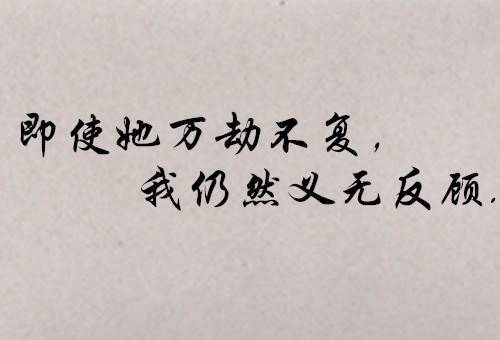 即使她万劫不复，
我仍然义无反顾.